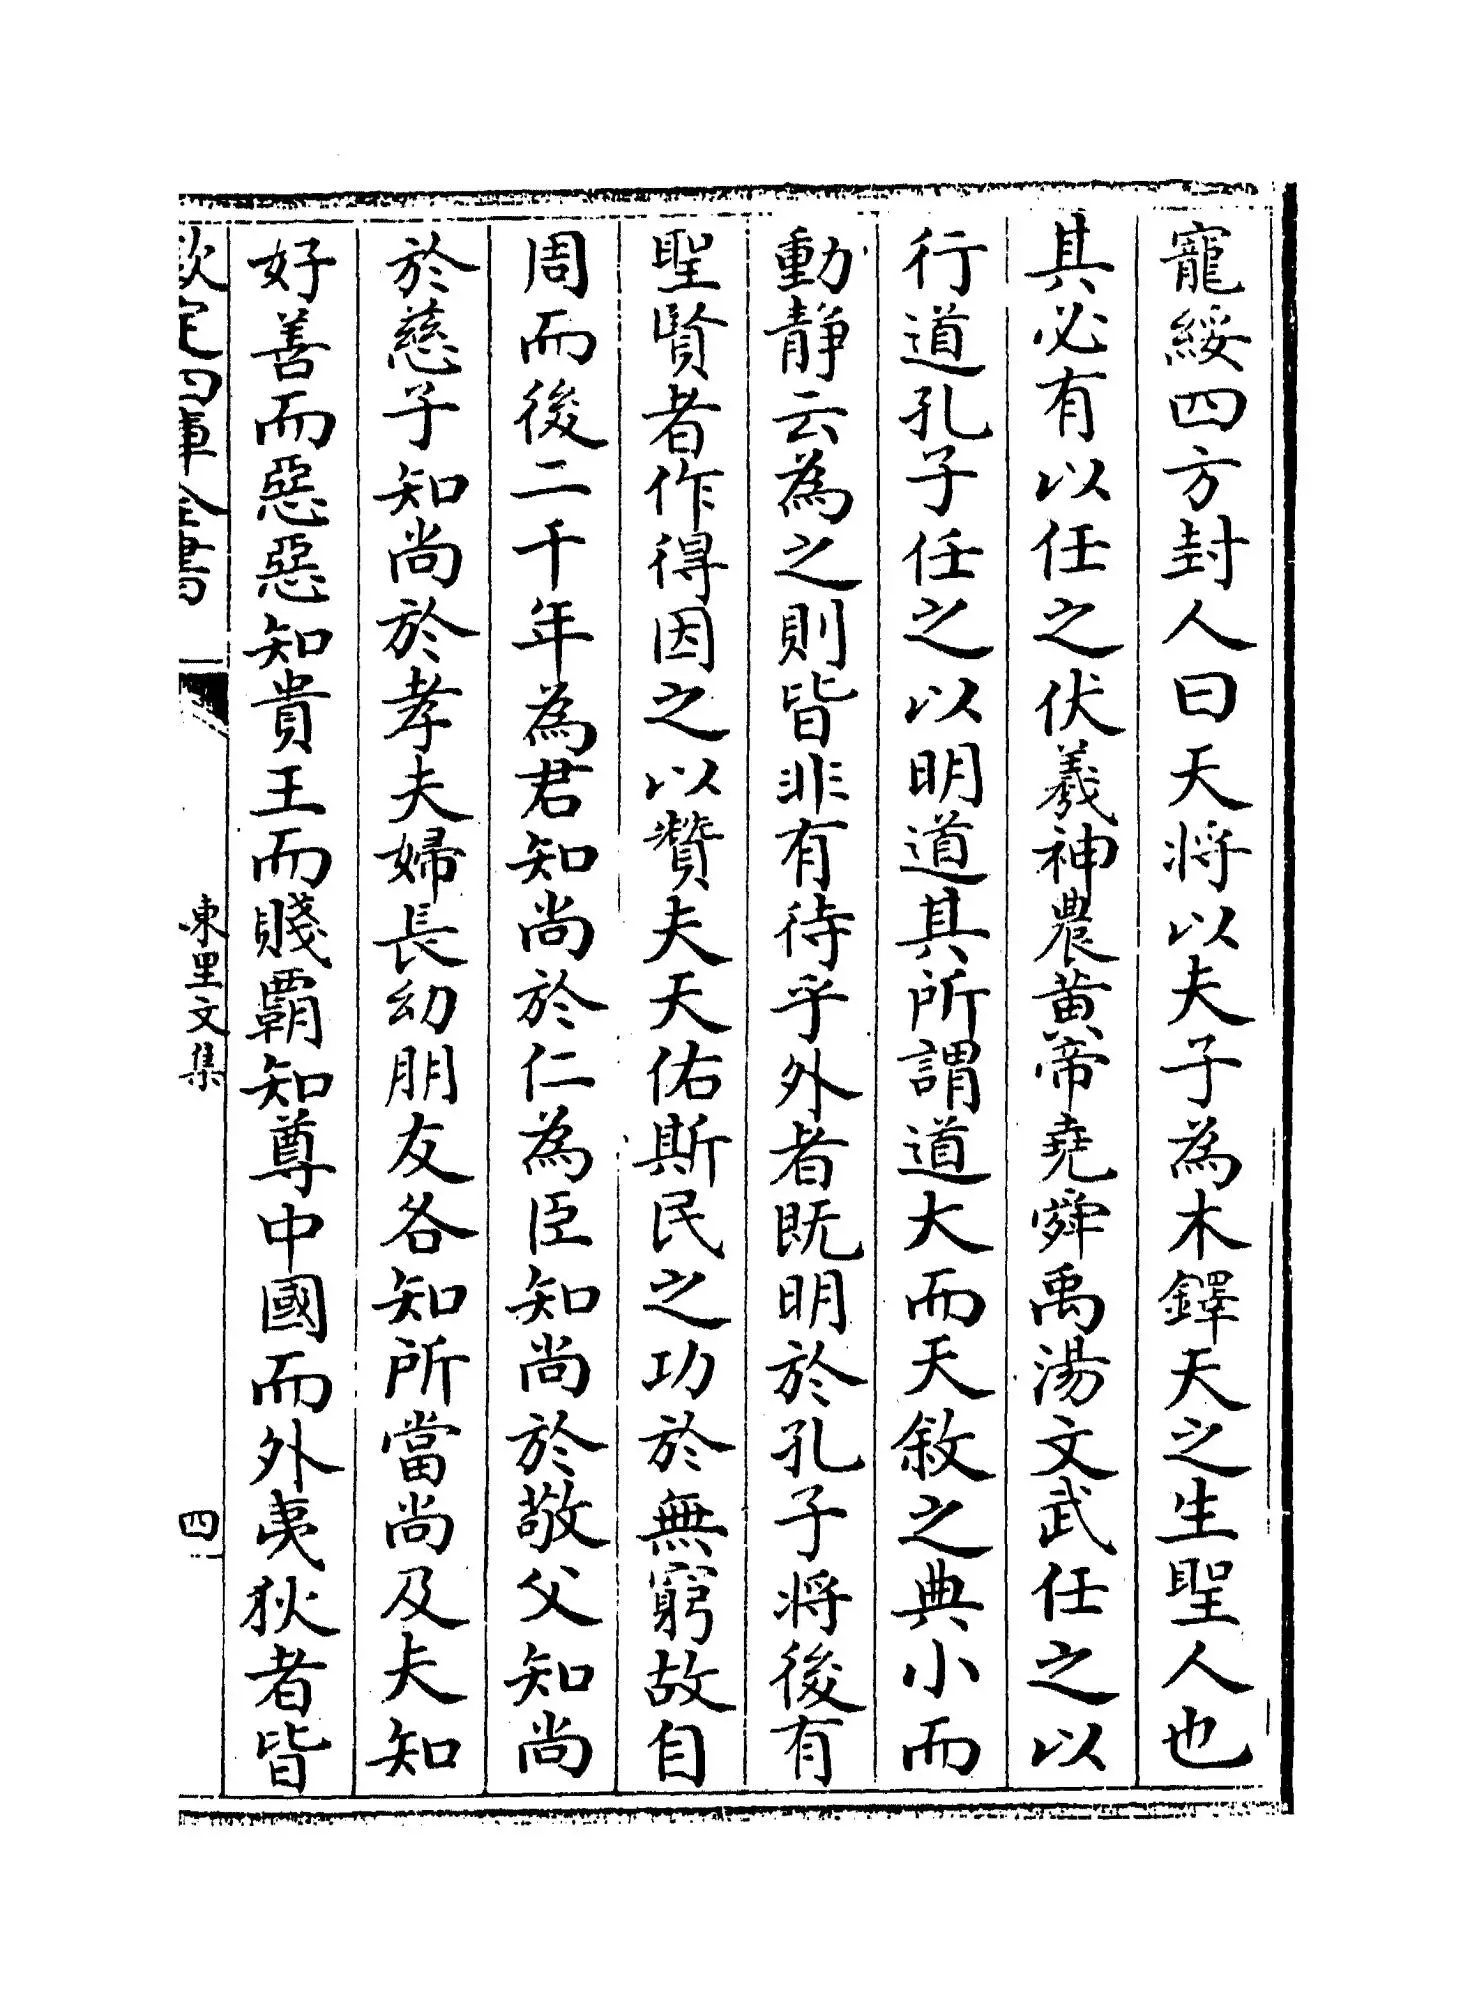 寵綏四方封人曰天将以夫子為木鐸天之生聖人也
其必有以任之伏羲神農黄帝堯舜禹湯文武任之以
行道孔子任之以明道其所謂道大而天敘之典小而
動静云為之則皆非有待乎外者既明於孔子将後有
聖賢者作得因之以贊夫天佑斯民之功於無窮故自
周而後二千年為君知尚於仁為臣知尚於敬父知尚
於慈子知尚於孝夫婦長幼朋友各知所當尚及夫知
好善而惡惡知貴王而賤覇知尊中國而外夷狄者皆
欽定四庫全書
東里文集
四